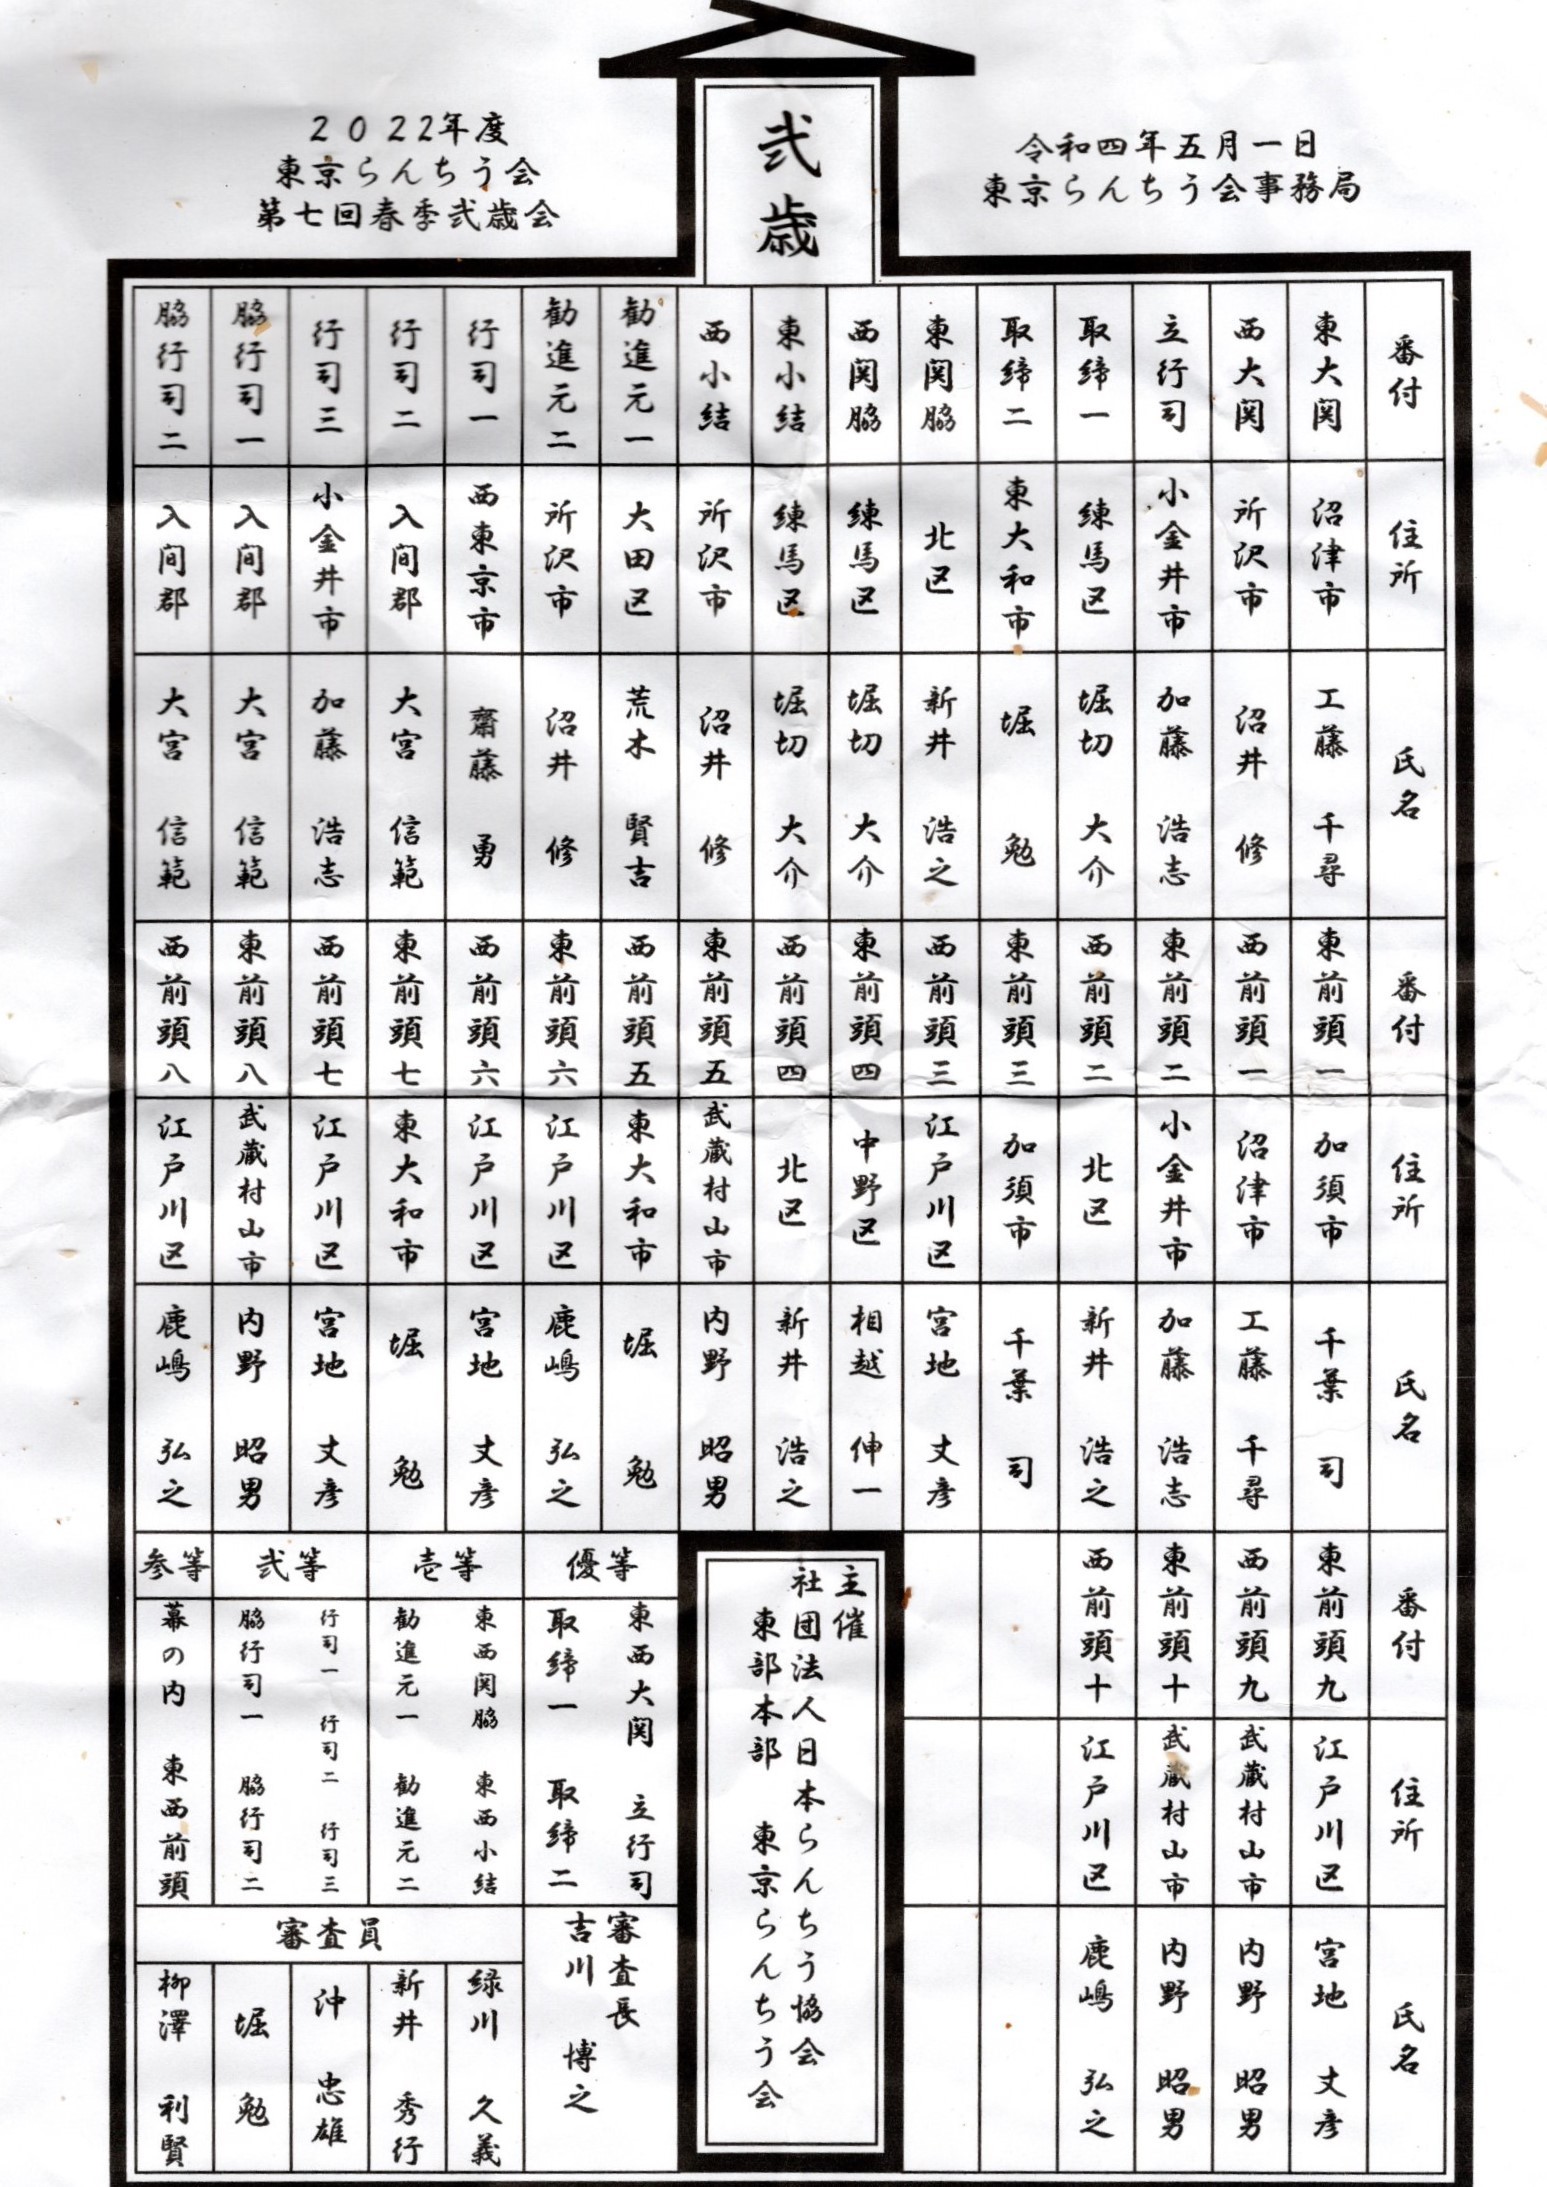 弐歳
令和四年五月一日
東京らんちう会事務局
2022年度
東京らんちう会
第七回春季弐歳会
番付 住所 氏名
東大関 沼津市 工藤 千尋
西大関 所沢市 沼井 修
立行司 小金井市 加藤 浩志
取締一 練馬区 堀切 大介
取締二 東大和市 堀 勉
東関脇 北区 新井 浩之
西関脇 練馬区 堀切 大介
東小結 練馬区 堀切 大介
西小結 所沢市 沼井 修
勧進元一 大田区 荒木 賢吉
勧進元二 所沢市 沼井 修
行司一 西東京市 齋藤 勇
行司二 入間郡 大宮 信範
行司三 小金井市 加藤 浩志
脇行司一 入間郡 大宮 信範
脇行司二 入間郡 大宮 信範
番付 住所 氏名
東前頭一 加須市 千葉 司
西前頭一 沼津市 工藤 千尋
東前頭二 小金井市 加藤 浩志
西前頭二 北区 新井 浩之
東前頭三 加須市 千葉 司
西前頭三 江戸川区 宮地 丈彦
東前頭四 中野区 相越 伸一
西前頭四 北区 新井 浩之
東前頭五 武蔵村山市 内野 昭男
西前頭五 東大和市 堀 勉
東前頭六 江戸川区 鹿嶋 弘之
西前頭六 江戸川区 宮地 丈彦
東前頭七 東大和市 堀 勉
西前頭七 江戸川区 宮地 丈彦
東前頭八 武蔵村山市 内野 昭男
西前頭八 江戸川区 鹿嶋 弘之
番付 住所 氏名
東前頭九 江戸川区 宮地 丈彦
西前頭九 武蔵村山市 内野 昭男
東前頭十 武蔵村山市 内野 昭男
西前頭十 江戸川区 鹿嶋 弘之
主催
社団法人日本らんちう協会
東部本部 東京らんちう会
優等
東西大関 立行司
取締一 取締二
壱等
東西関脇 東西小結
勧進元一 勧進元二
弐等
行司一 行司二 行司三
脇行司一 脇行司二
参等
幕の内 東西前頭
審査長
吉川 博之
審査員
緑川 久義
新井 秀行
沖 忠雄
堀 勉
柳澤 利賢